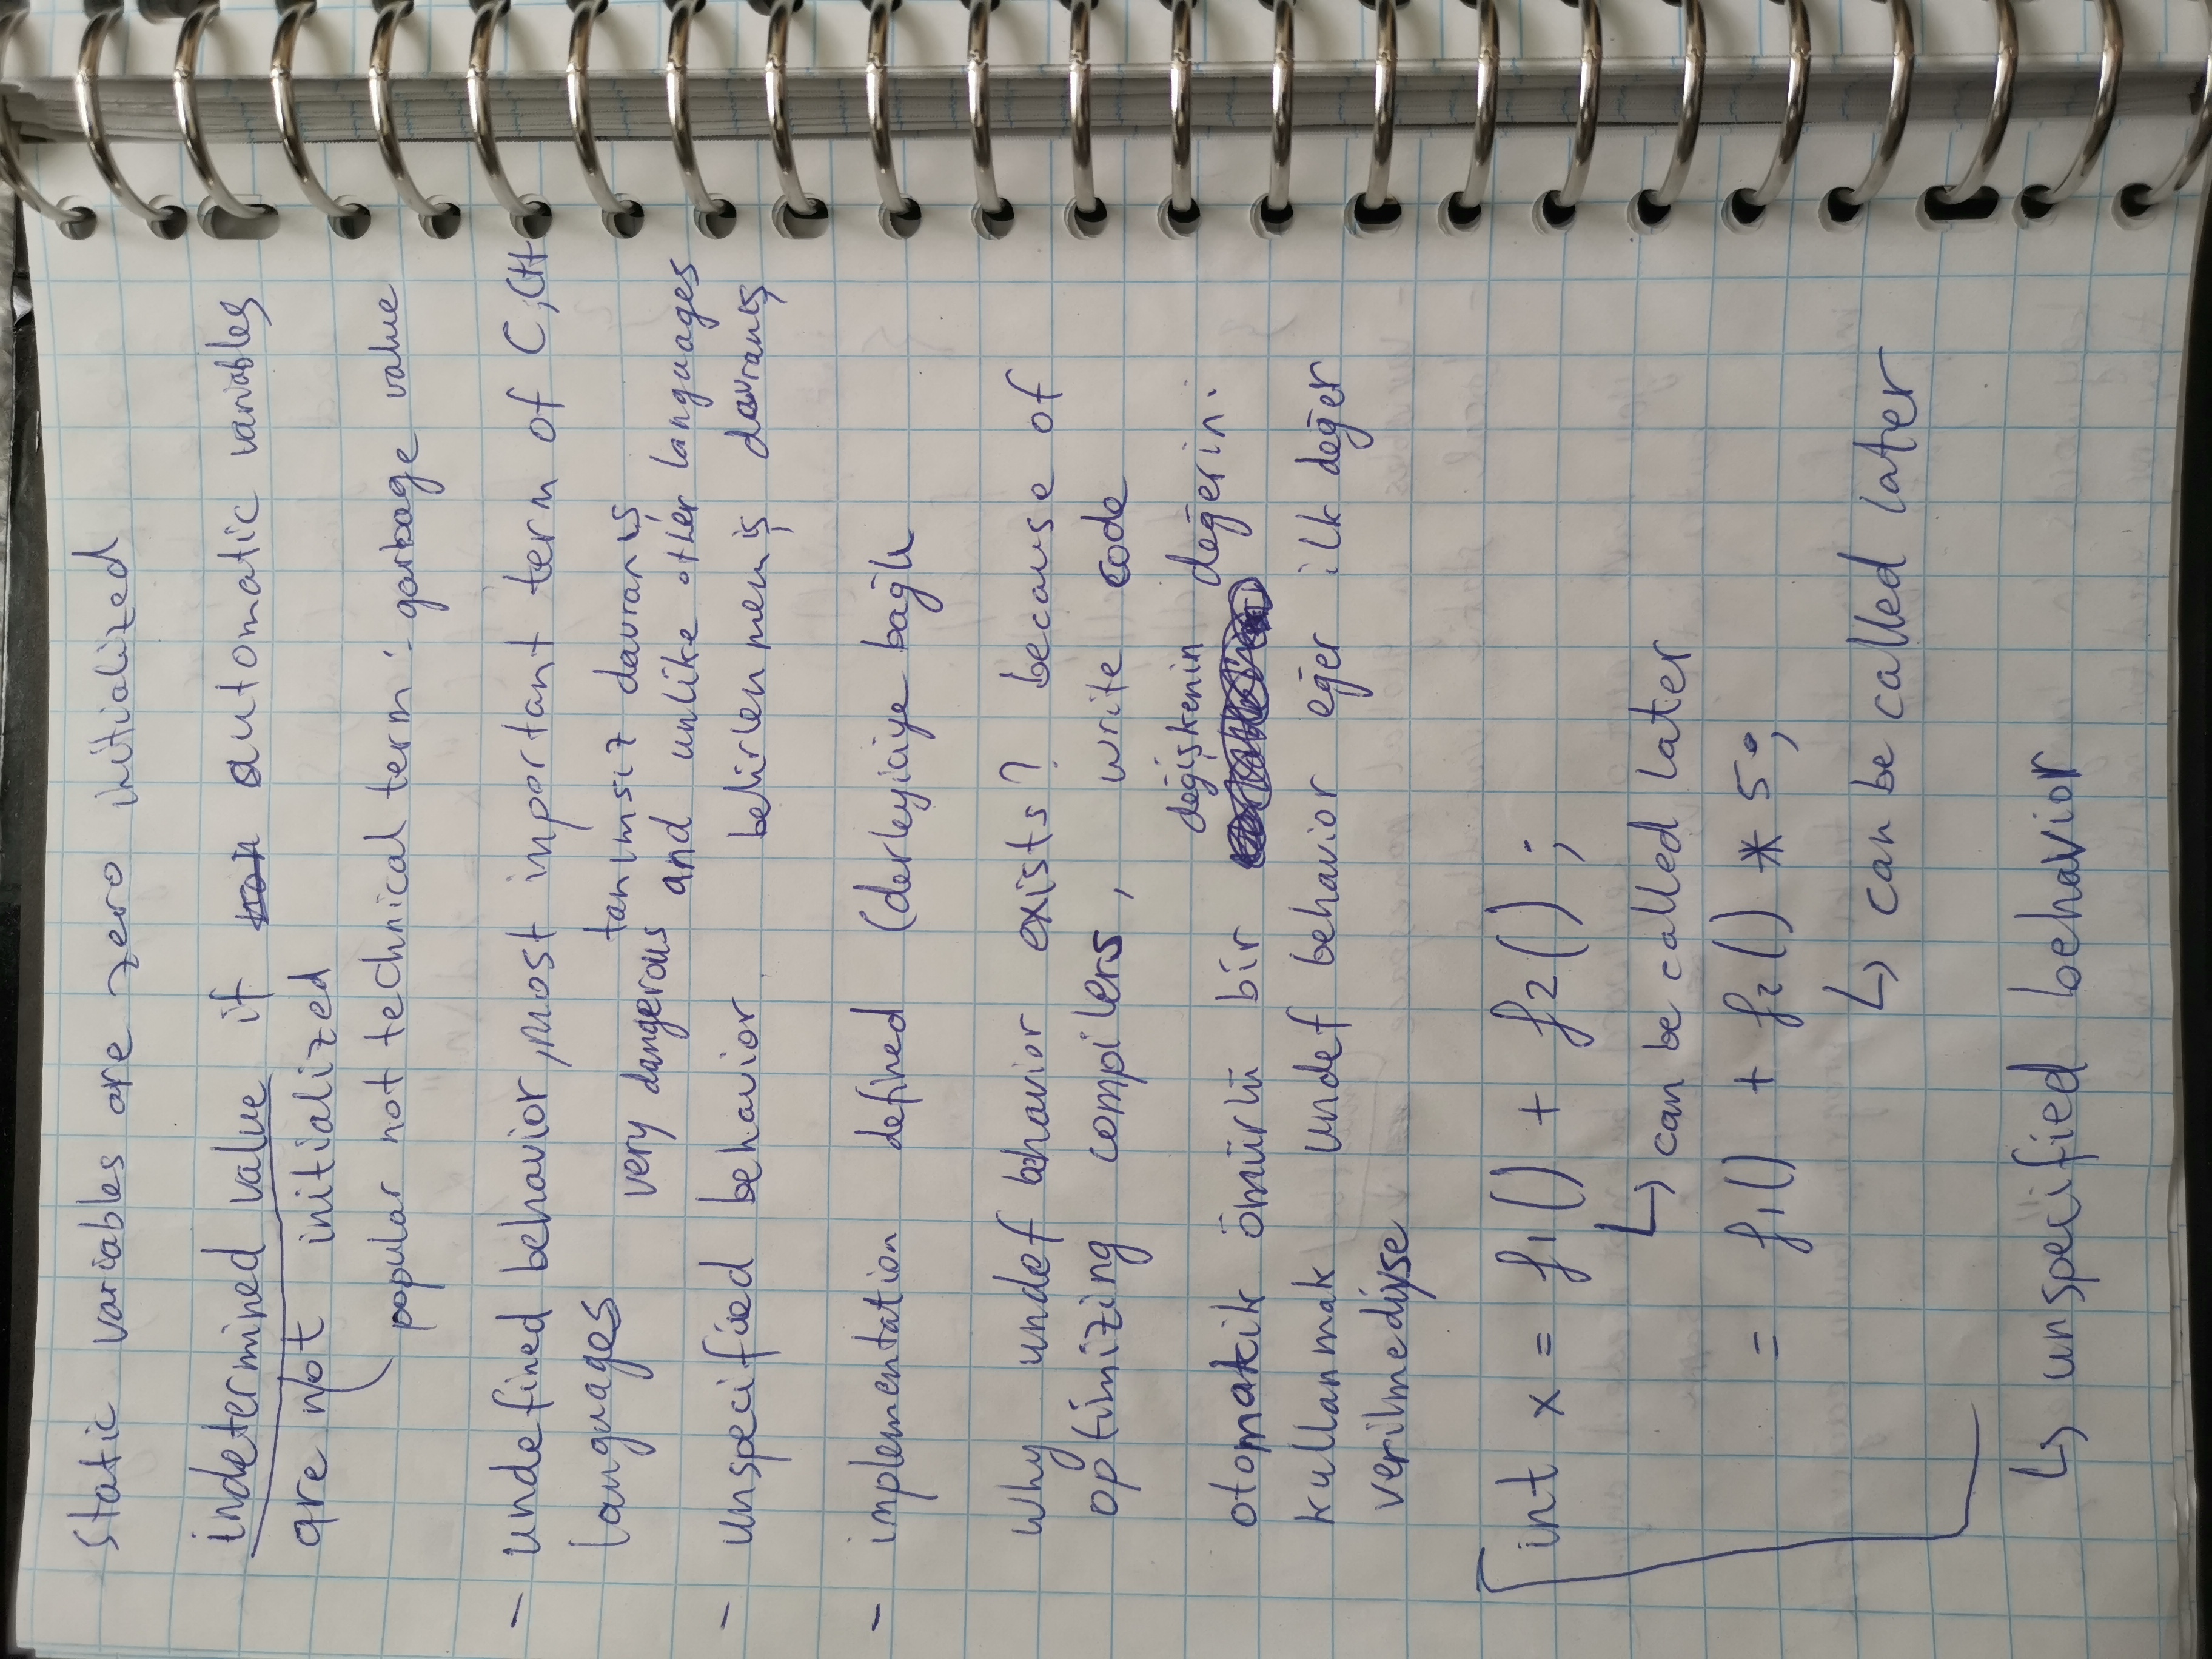 static variables are zero initialized
indetermined value if automatic variables
are not initialized
popular not technical term : garbage value
- undefined behavior, most important term of C, C++
languages
tanımsız davranış
very dangerous and unlike other languages
- unspecified behavior belirlenmemiş davranış
- implementation defined (derleyiciye bağlı
why undef behavior exists? because of
optimizing compilers, write code
değişkenin değerini
otomatik ömürlü bir
kullanmak undef behavior eğer ilk değer
verilmediyse
int x = f1() + f2() ;
↳ can be called later
= f1() + f2() * 5;
↳ can be called later
↳ unspecified behavior